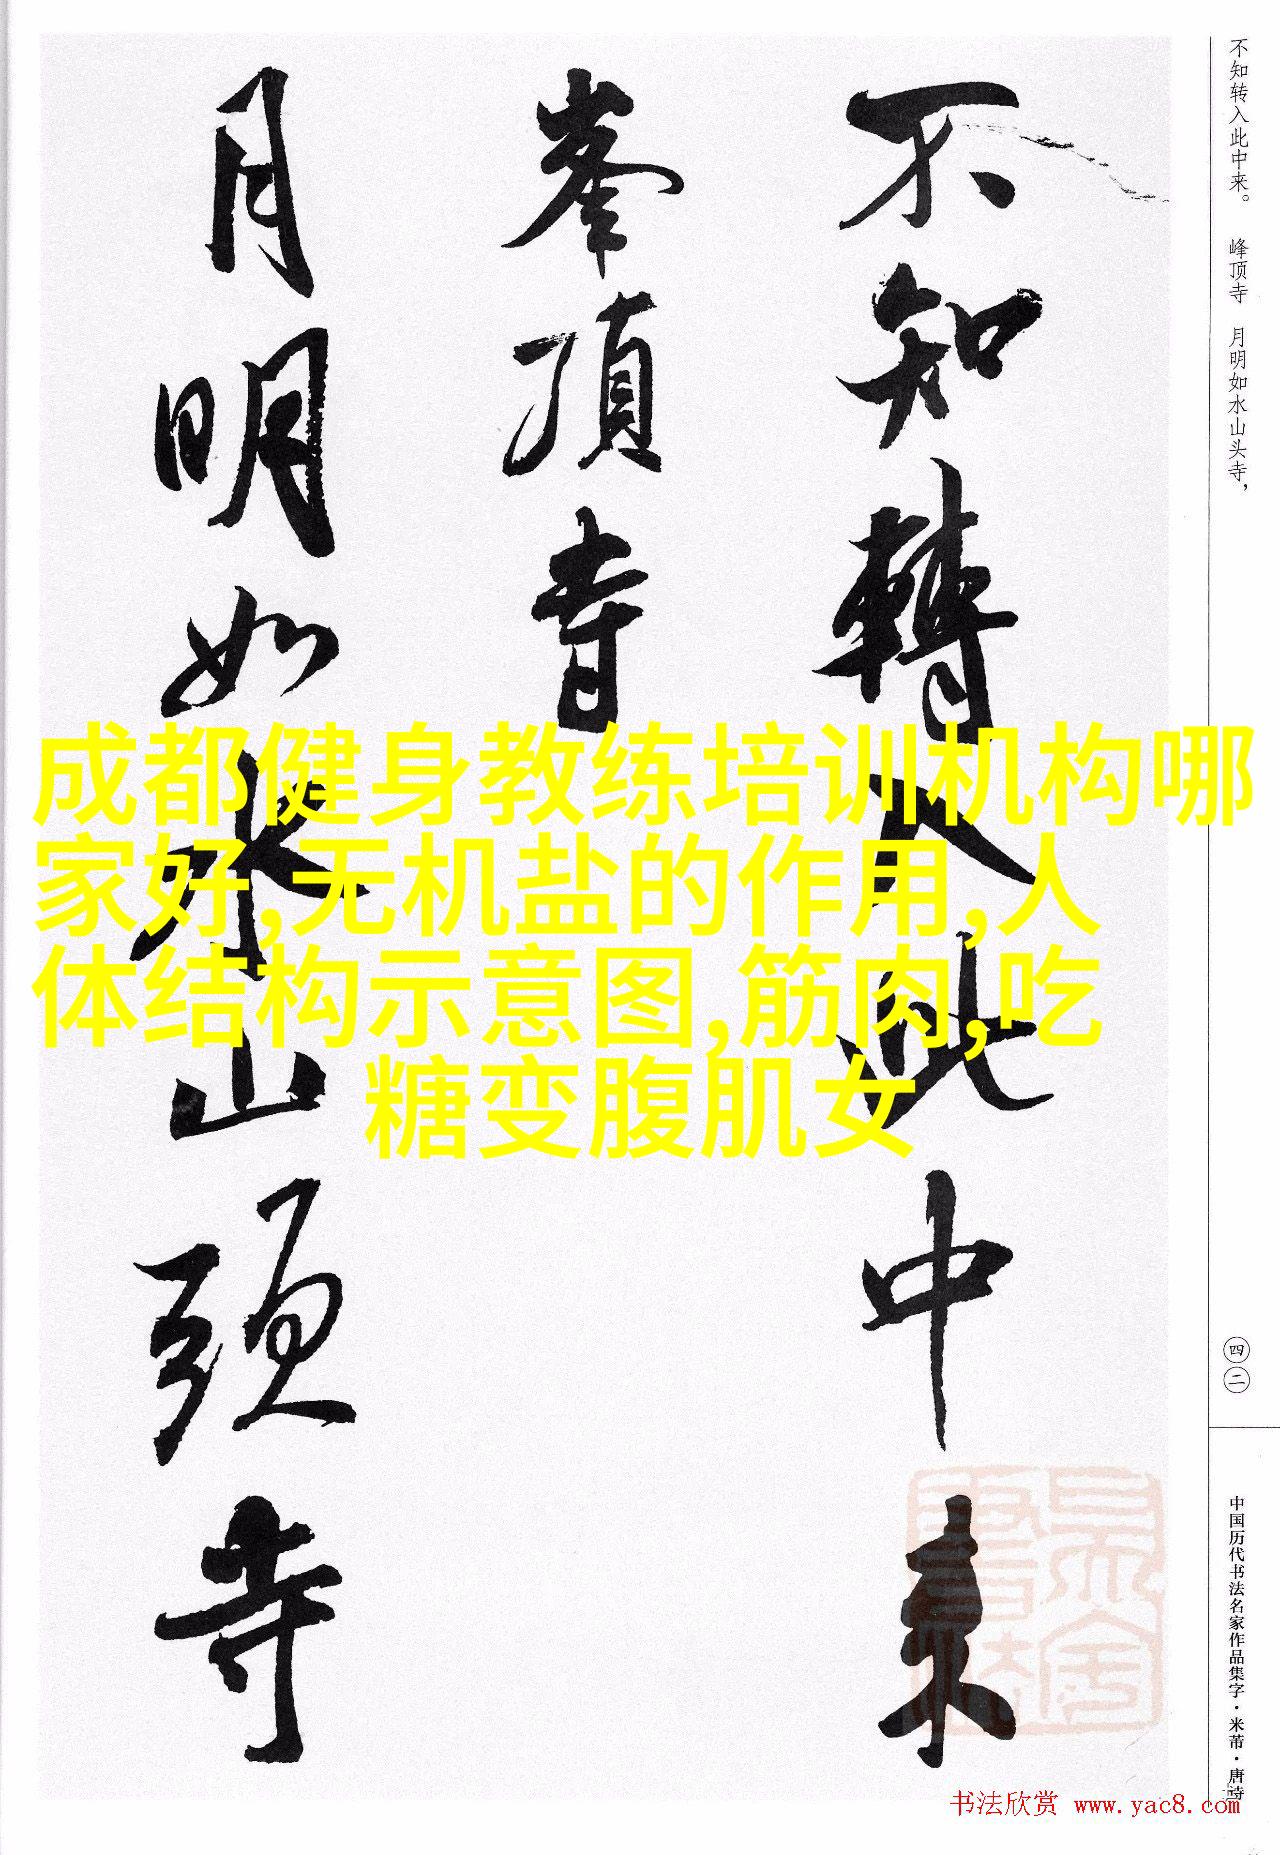 不知轉入此中来
峯頂寺
月明如水山頭寺
不知转入此中来。 峰顶寺 月明如水山头寺，
四二
中国历代书法名家作品集字·米芾·唐诗
成都健身教练培训机构哪
家好,无机盐的作用,人
体结构示意图,筋肉,吃
糖变腹肌女
书法欣赏 www.yac8.com